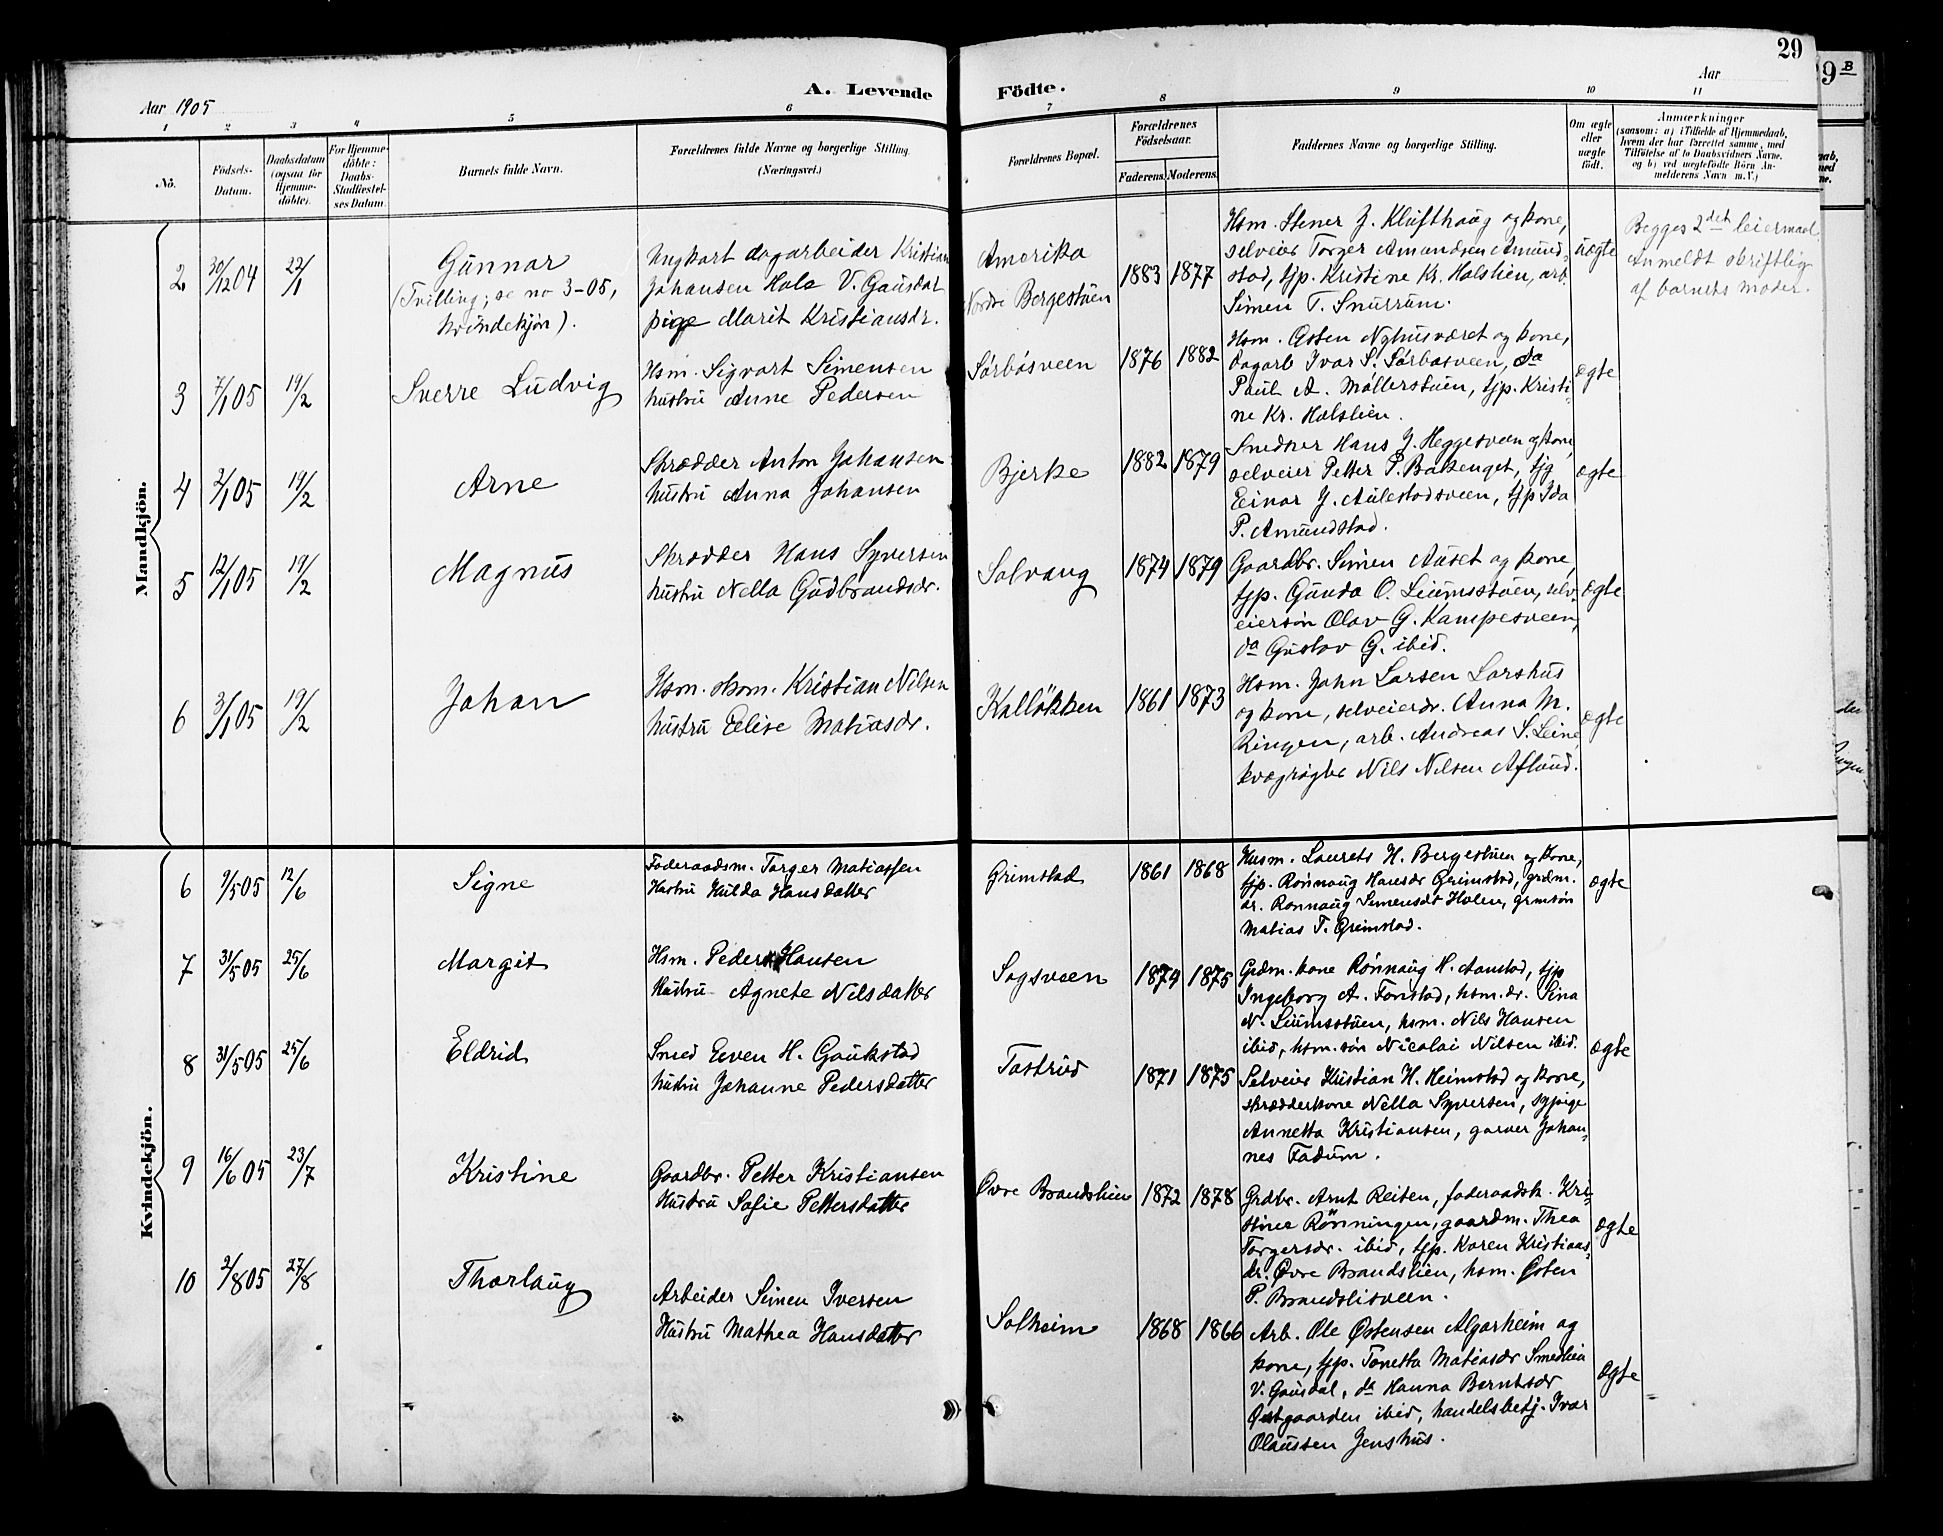 29
Aar 1905
A. Levende
Födte.
Aar
9B
1 2 3 4 5 6 7 8 9 10 11
No.
Födsels-
Datum.
Daabsdatum
(ogsaa for
Hjemme-
döbte).
For Hjemme-
döbte:
Daabs-
Stadfæstel-
ses Datum.
Barnets fulde Navn.
Forældrenes fulde Navne og borgerlige Stilling
(Næringsvei.)
Forældrenes Bopæl.
Forældrenes
Födselsaar.
Faderens. Moderens.
Faddernes Navne og borgerlige Stilling.
Om ægte
eller
uægte
født.
Anmærkninger
(saasom: a) i Tilfælde af Hjemmedaab,
hvem der har forrettet samme, med
Tilföielse af to Daabsvidners Navne,
og b) ved uægtefödte Börn An-
melderens Navn m.V.)
Mandkjön.
2
30/12 04
22/1
Gunnar
(Tvilling; se no 3-05,
kvindekjøn).
Ungkart dagarbeider Kristian
Johansen Hols V. Gausdal
pige Marit Kristiansdr.
Amerika
Nordre Bergestuen
1883 1877
Hsm. Stener J. Klufthaug og kone,
selveier Torger Amundsen Amund-
stad, tjp. Kristine Kr. Halslien, arb.
Simen T. Snurrum.
uægte
Begges 2det leiermaal.
Anmeldt skriftlig
af barnets moder.
3
7/1 05
19/2
Sverre Ludvig
Hsm. Sigvart Simensen
hustru Anne Pedersen
Sørbøsveen
1876 1882
Hsm. Østen Nyhusværet og kone,
dagarb Ivar S. Sørbøsveen, da
Paul A. Møllerstuen, tjp. Kristi-
ne Kr. Halslien.
ægte
4
2/1 05
19/2
Arne
Skrædder Anton Johansen
hustru Anna Johansen
Bjerke
1882 1879
Snedker Hans J. Heggesveen og kone,
selveier Petter P. Bakenget, tjg
Einar J. Aulestadsveen, tjp Ida
P. Amundstad.
ægte
5
12/1 05
19/2
Magnus
Skrædder Hans Syversen
hustru Nella Gudbrandsdr.
Solvang
1874 1879
Gaardbr. Simen Auset og kone,
tjp. Gunda O. Liumsstuen, selv-
eiersøn Olav G. Kampesveen,
da Gustav G. ibid.
ægte
6
3/1 05
19/2
Johan
Hsm. skom. Kristian Nilsen
hustru Elise Matiasdr.
Kalløkken
1861 1873
Hsm. John Larsen Larshus
og kone, selveierdr. Anna M.
Ringen, arb. Andreas S. Leine
kvægrøgter Nils Nilsen Aflund.
ægte
Kvindekjön.
6
9/5 05
12/6
Signe
Føderaadsm. Torger Matiassen
Hustru Hulda Hansdatter
Grimstad
1861 1868
Husm. Laurets H. Bergestuen og kone,
tjp. Rønnaug Hansdr Grimstad, grdm.
dr. Rønnaug Simensdt Holen, grmsøn
Matias T. Grimstad.
ægte
7
31/5 05
25/6
Margit
Hsm. Peder Hansen
Hustru Agnete Nilsdatter
Sagsveen
1874 1875
Grdm. kone Rønnaug H. Aanstad, tjp
Ingeborg A. Fonstad, hsm. dr. Sina
N. Liumsstuen, hsm. Nils Hansen
ibid, hsm. søn Nicolai Nilsen ibid.
ægte
8
31/5 05
25/6
Eldrid
Smed Even H. Gaukstad
hustru Johanne Pedersdatter
Tostrud
1871 1875
Selveier Kristian H. Heimstad og kone,
skrædderkone Nella Syversen, sypige
Annetta Kristiansen, garver Johan-
nes Fadum.
9
16/6 05
23/7
Kristine
Gaardbr. Petter Kristiansen
Hustru Sofie Pettersdatter
Øvre Brandslien
1872 1878
Grdbr. Arnt Reiten, føderaadsk. Kri-
stine Rønningen, gaardm. Thea
Torgersdr. ibid, tjp. Karen Kristians-
dr. Øvre Brandslien, hsm. Østen
P. Brandslisveen.
ægte
10
2/8 05
27/8
Thorlaug
Arbeider Simen Iversen
Hustru Mathea Hansdatter
Solheim
1868 1866
Arb. Ole Østensen Algarheim og
kone, tjp. Tonetta Matiasdr Smedlien
V. Gausdal, da Hanna Berntsdr
Østgaarden ibid, handelsbetj. Ivar
Olaussen Jenshus.
ægte